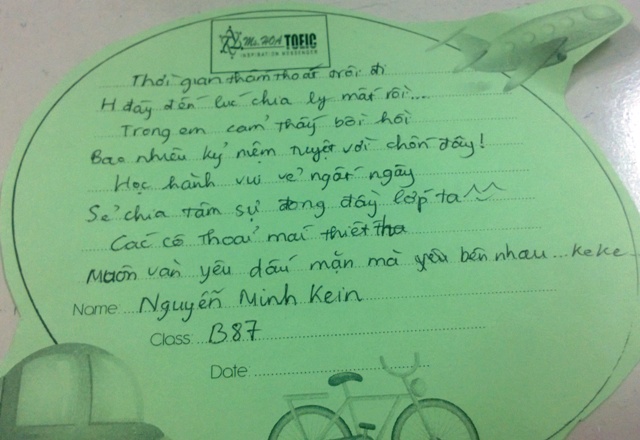 Ms. HOA TOEIC
INSPIRATION MESSENGER
Thời gian thấm thoắt trôi đi
H đây đến lúc chia ly mất rồi...
Trong em cảm thấy bồi hồi
Bao nhiêu kỷ niệm tuyệt vời chốn đây!
Học hành vui vẻ ngất ngây
Sẻ chia tâm sự đong đầy lớp ta ^^
Các cô thoải mái thiết tha
Muôn vàn yêu dấu mặn mà yêu bên nhau... keke
Name: Nguyễn Minh Kein
Class: B87
Date: